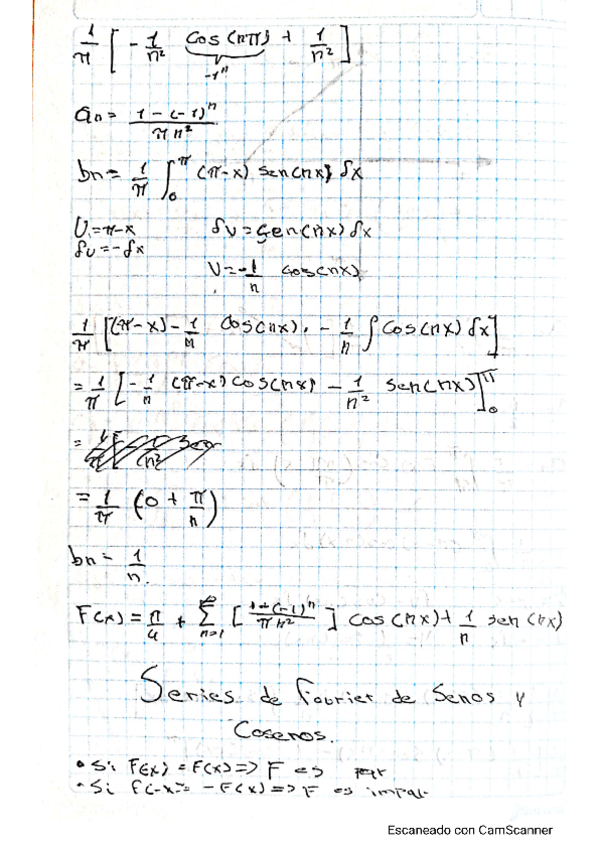 1/π [ - 1/n² cos(nπ) + 1/n² ]
-1ⁿ
an = 1-(-1)ⁿ / πn²
bn = 1/π ∫₀^π (π-x) sen(nx) dx
U = π-x dv = sen(nx) dx
du = -dx
V = -1/n cos(nx)
1/π [(π-x) - 1/n cos(nx) . - 1/n ∫ cos(nx) dx]
= 1/π [ - 1/n (π-x) cos(nx) - 1/n² sen(nx) ]₀^π
= 1/π (0 + π/n)
bn = 1/n.
F(x) = π/4 + Σ_{n=1}^∞ [ (-1)ⁿ / πn² ] cos(nx) + 1/n sen(nx)
Series de Fourier de Senos y
Cosenos.
• Si = F(x) => F es par
• Si f(-x) = -F(x) => F es impar
Escaneado con CamScanner